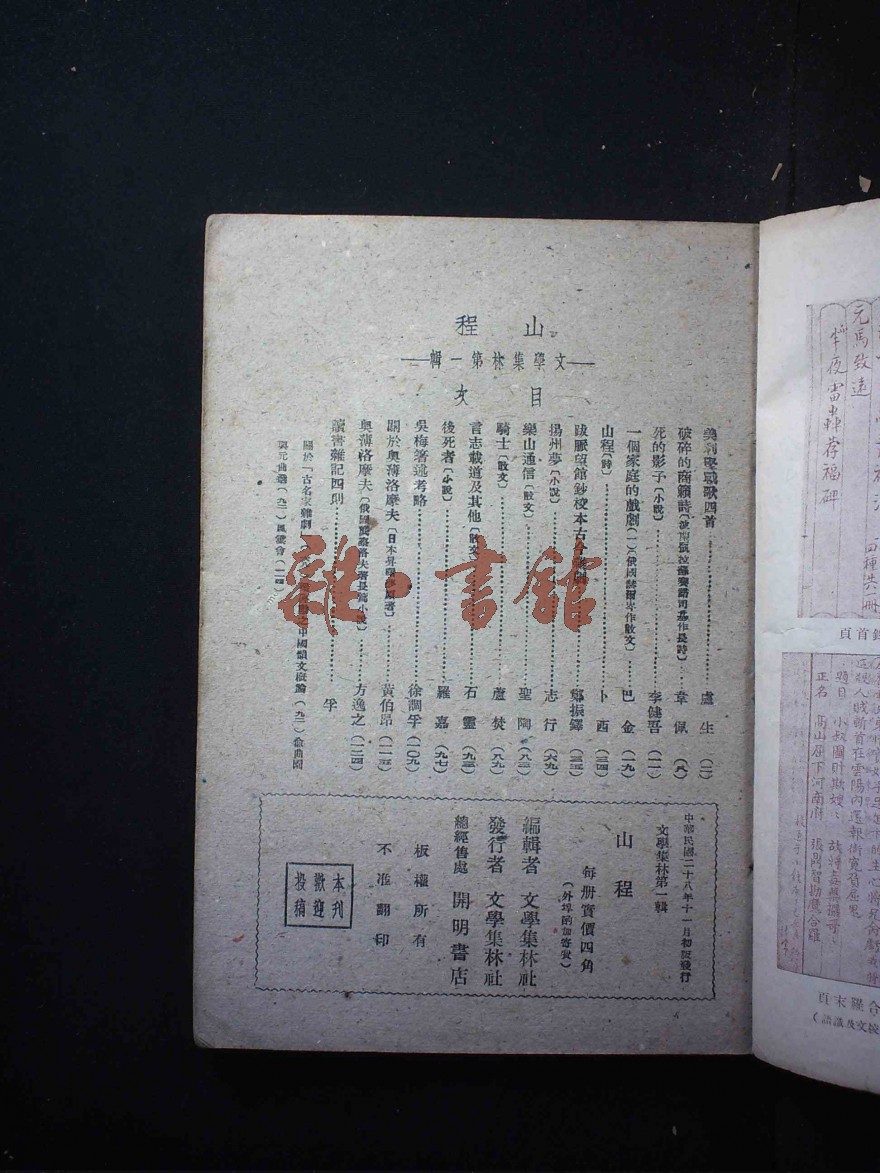 山程
——文學集林第一輯——
目次
美利堅戰歌四首 盧生(二)
破碎的商籟詩 韋佩(八)
死的影子〔小說〕 李健吾(一一)
一個家庭的戲劇(一)〔俄國赫爾岑作散文〕 巴金(一九)
山程〔詩〕 卜西(三四)
跋脈望館鈔校本古今雜劇 鄭振鐸
揚州夢〔小說〕 志行(六九)
樂山通信〔散文〕 聖陶(八三)
騎士〔散文〕 蘆焚(八九)
言志載道及其他〔散文〕 石靈(九三)
後死者〔小說〕 羅嘉(九七)
吳梅著述考略 徐調孚(一〇九)
關於奧薄洛摩夫〔日本昇曙夢原著〕 黃伯昂
奧薄洛摩夫〔俄國岡察洛夫著長篇小說〕 方逸之(一二四)
讀書雜記四則 孚
關於「古名家雜劇 中國類文概論(九二)
與元曲選(九二)
中華民國二十八年十一月初版發行
文學集林第一輯
山程
每册實價四角
(外埠酌加寄費)
編輯者 文學集林社
發行者 文學集林社
總經售處 開明書店
板權所有
不准翻印
本刊
歡迎
投稿
雜·書館
元馬致遠
半夜雷轟荐福碑
四種共一冊
首頁
題目 小叔圖財欺嫂嫂
正名 高山屈下河南府
末頁
校文及識語)